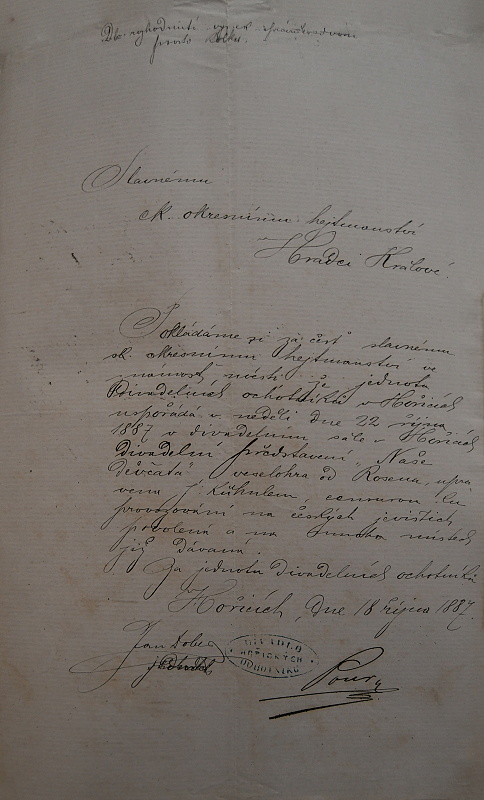 Slavnému
ck. okresnímu hejtmanství
Hradci Králové.
Pokládáme si za čest slavnému
ck. okresnímu hejtmanství ve
známost vésti, že jednota
divadelních ochotníků v Hořicích
uspořádá v neděli dne 22 října
1887 v divadelním sále v Hořicích
divadelní představení „Naše
děvčata" veselohra od Rosena, upra
vena J. Kühnlem, censurou ku
provozování na českých jevištích
povolená a na mnoha místech
již dávaná.
Za jednotu divadelních ochotníků
v Hořicích, dne 18 října 1887.
Jan
DIVADLO
HOŘICKÝCH
OCHOTNÍKŮ
Pour